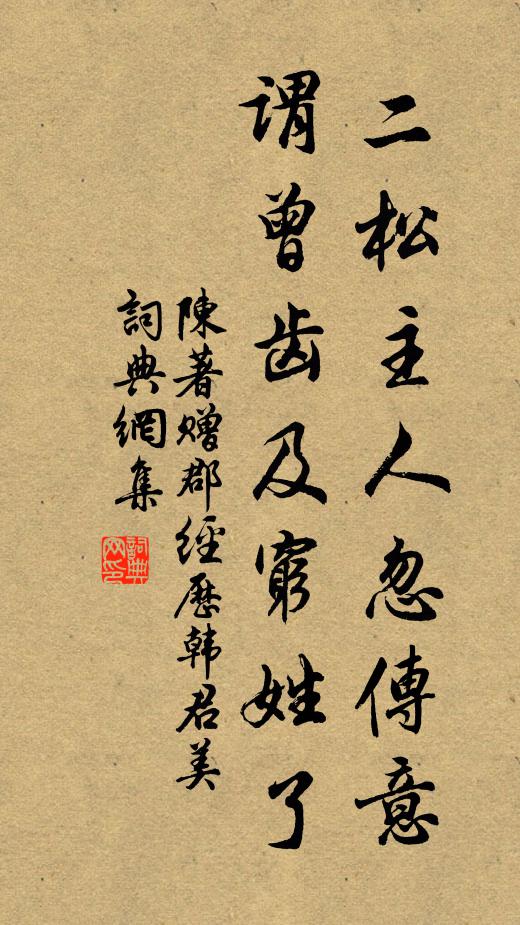 二松主人忽傳意
謂曾齿及窮姓了
陳著赠郡經歷韩君美
詞典網集
詞典网印